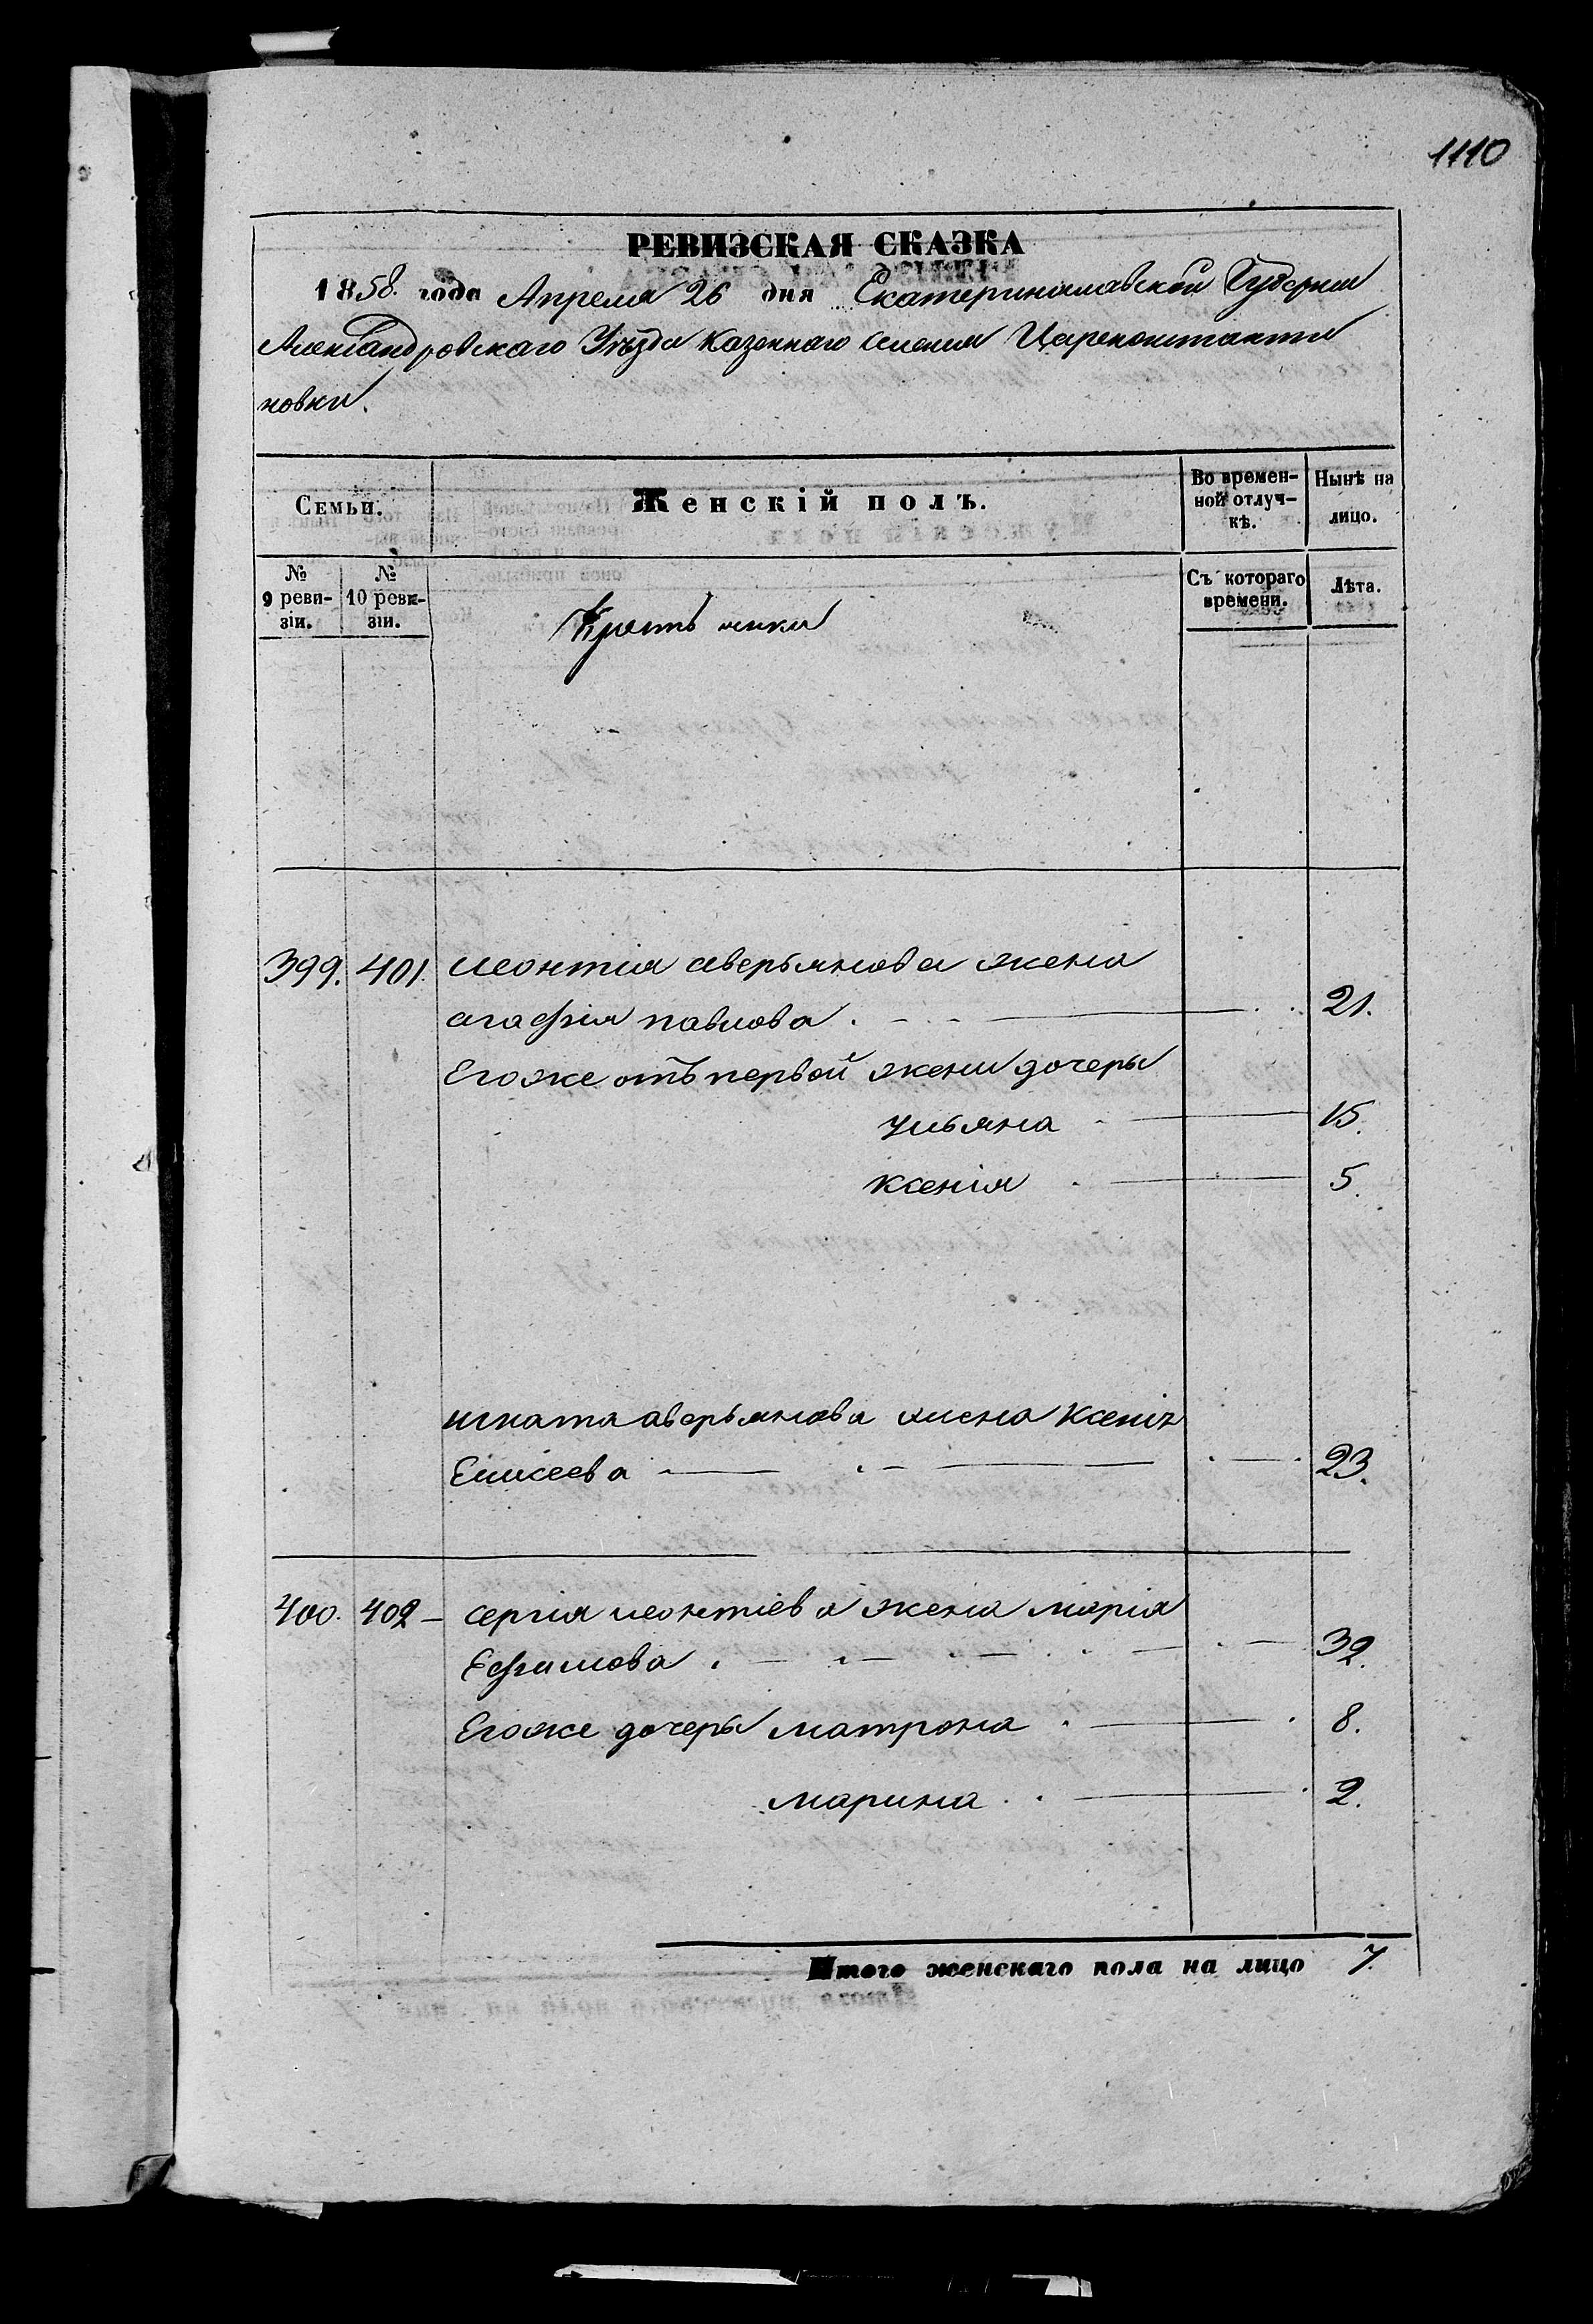 1110
РЕВИЗСКАЯ СКАЗКА
1858. года Апреля 26 дня Екатеринославской Губернии
Александровскаго Уѣзда Казеннаго селения Цареконстанти
новки.
Семьи.
Женскій полъ.
Во времен-
ной отлуч-
кѣ.
Нынѣ на
лицо.
№
9 реви-
зіи.
№
10 реви-
зіи.
Съ котораго
времени.
Лѣта.
399. 401. леонтія аверьянова жена
агафія павлова . 21.
Егоже отъ первой жени дочеры
ульяна 15.
ксенія 5.
игната аверьянова жена Ксенія
Елисеева 23.
400. 402 – сергія леонтіева жена марія
Ефимова . 32.
Егоже дочеры матрона 8.
марина 2.
Итого женскаго пола на лицо 7.